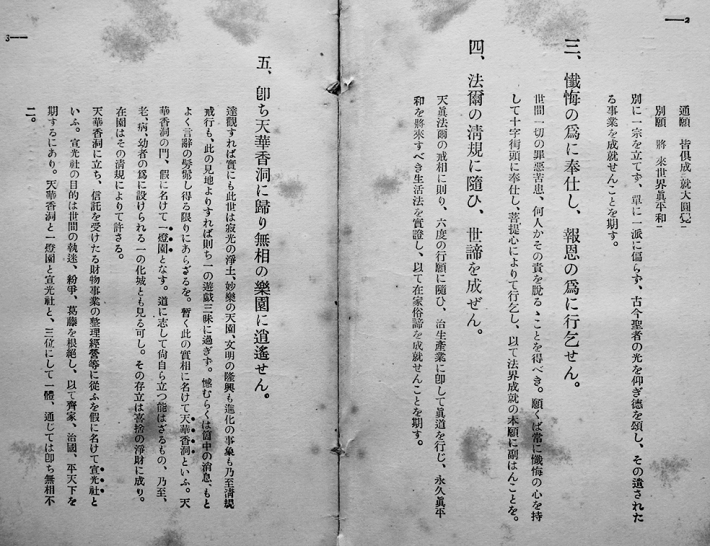 2
通願 皆俱成 就大圓覺
別願 將 來世界眞平和
別に一宗を立てず、單に一派に偏らず、古今聖者の光を仰ぎ德を頌し、その遺された
る事業を成就せんことを期す。
三、懺悔の爲に奉仕し、報恩の爲に行乞せん。
世間一切の罪惡苦患、何人かその責を脫るゝことを得べき。願くば常に懺悔の心を持
して十字街頭に奉仕し、菩提心によりて行乞し、以て法界成就の本願に副はんことを。
四、法爾の淸規に隨ひ、世諦を成ぜん。
天眞法爾の戒相に則り、六度の行願に隨ひ、治生產業に卽して眞道を行じ、永久眞平
和を將來すべき生活法を實證し、以て在家俗諦を成就せんことを期す。
3
五、卽ち天華香洞に歸り無相の樂園に逍遙せん。
達觀すれば實にも此世は寂光の淨土、妙樂の天園、文明の隆興も進化の事象も乃至淸規
戒行も、此の見地よりすれば則ち一の遊戲三昧に過ぎず。憾むらくは箇中の消息、もと
よく言辭の髣髴し得る限りにあらざるを。暫く此の實相に名けて天華香洞といふ。天
華香洞の門、假に名けて一燈園となす。道に志して尙自ら立つ能はざるもの、乃至、
老、病、幼者の爲に設けられる一の化城とも見る可し。その存立は喜捨の淨財に成り。
在園はその淸規によりて許さる。
天華香洞に立ち、信託を受けたる財物事業の整理經營等に從ふを假に名けて宣光社と
いふ。宣光社の目的は世間の執迷、紛爭、葛藤を根絕し、以て齊家、治國、平天下を
期するにあり。天華香洞と一燈園と宣光社と、三位にして一體、通じては卽ち無相不
二。